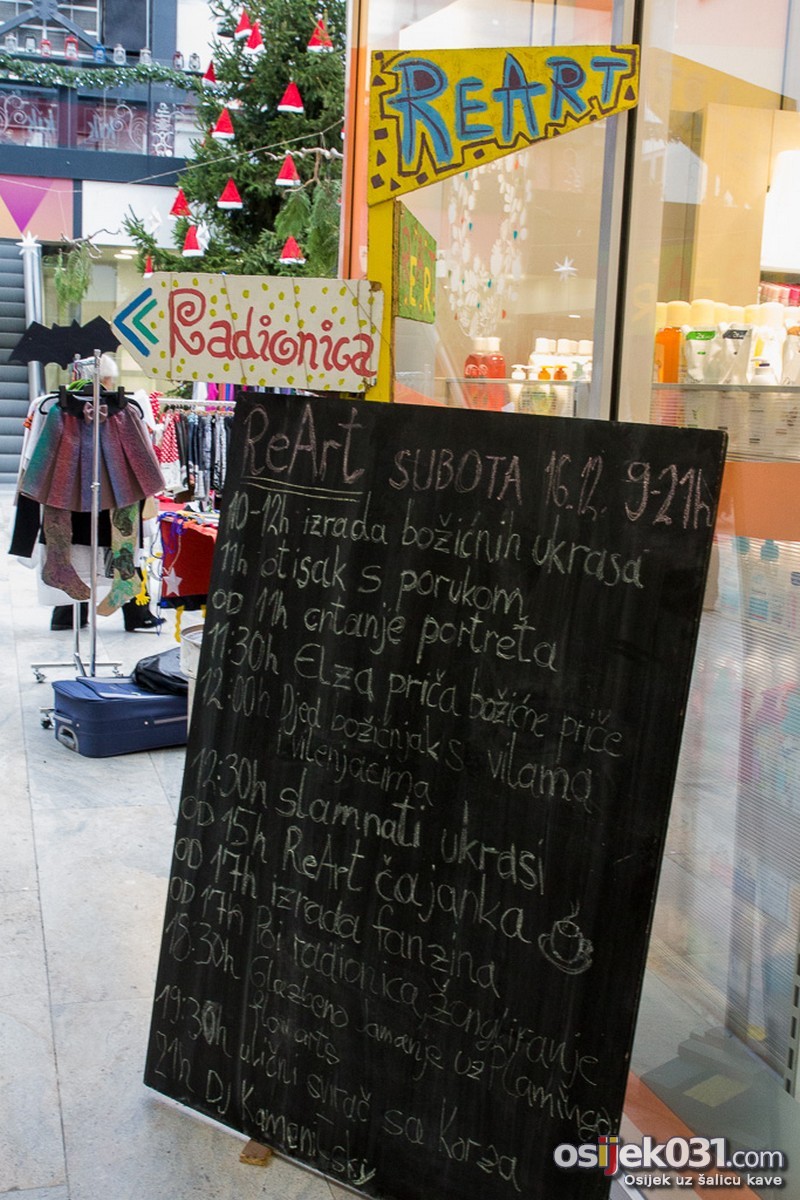 ReArt
Radionica
ReArt SUBOTA 16.12. 9-21h
10-12h izrada božićnih ukrasa
11h otisak s porukom
OD 11h crtanje portreta
11:30h Elza priča božićne priče
12:00h Djed božićnjak s vilama
i vilenjacima
12:30h slamnati ukrasi
OD 15h ReArt čajanka
OD 17h izrada fanzina
OD 17h Poi radionica, žongliranje
18:30h Glazbeno uz Plamingo
flow arts
19:30h ulični svirač sa Korza
21h DJ Kamenitsky
osijek031.com
Osijek uz šalicu kave